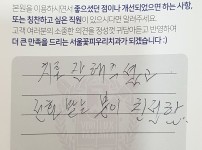 본원을 이용하시면서 좋으셨던 점이나 개선되었으면 하는 사항,
또는 칭찬하고 싶은 직원이 있으시다면 알려주세요.
고객 여러분의 소중한 의견을 귀담아듣고 반영하여
더 큰 만족을 드리는 서울꽃피우리치과가 되겠습니다 :)
치료 잘 해주셨고
전화 받는 분이 친절함.